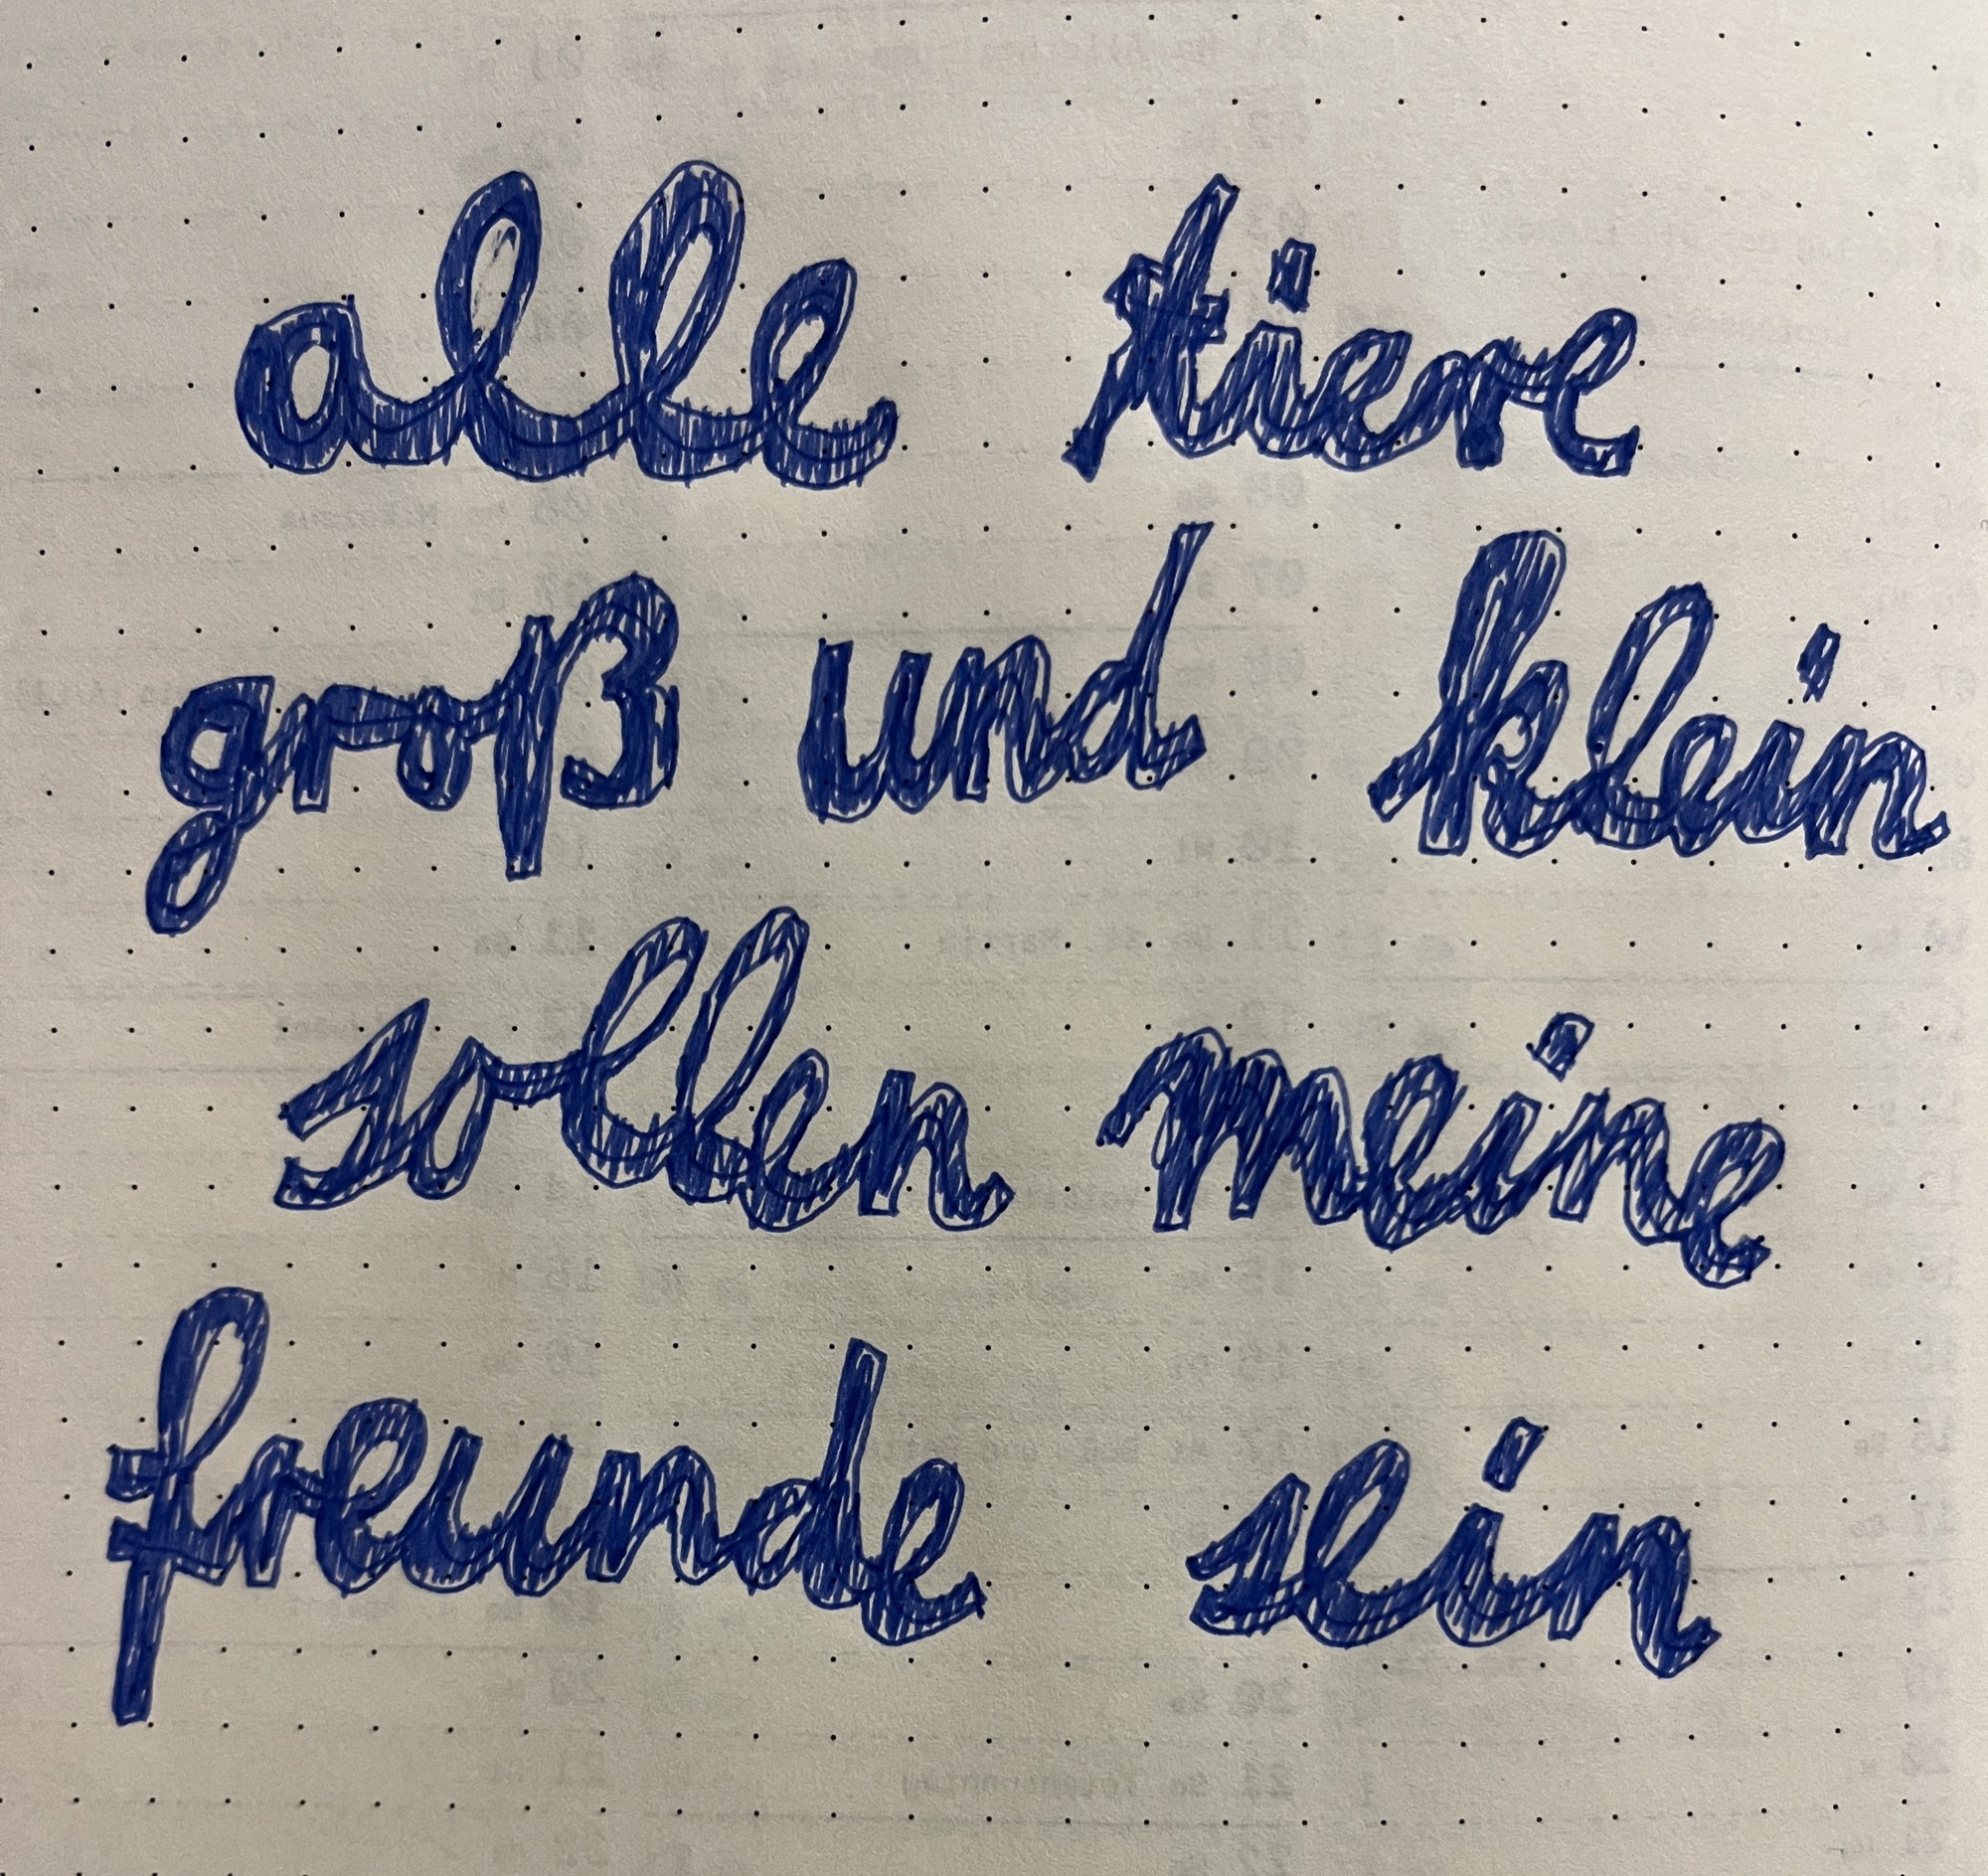 alle tiere
groß und klein
sollen meine
freunde sein